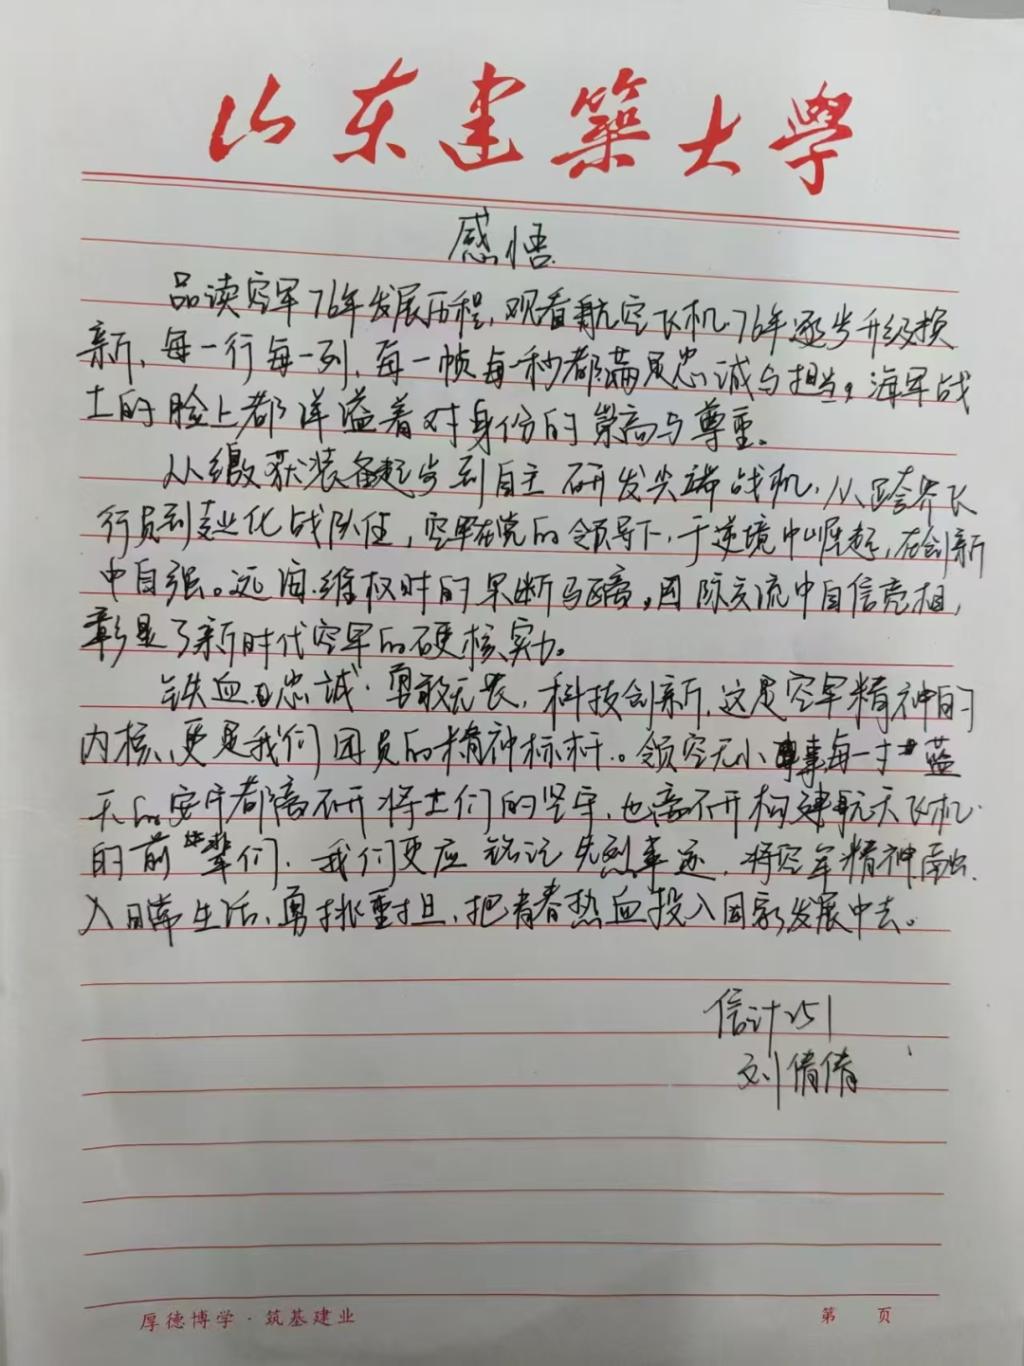 山东建築大學
感悟
品读空军76年发展历程，观看航空飞机76年逐步升级换
新，每一行每一列，每一帧每一秒都满是忠诚与担当，海军战
士的脸上都洋溢着对身份的崇高与尊重。
从缴获装备起步到自主研发尖端战机，从跨界飞
行员到专业化战队伍，空军在党的领导下，于逆境中崛起，在创新
中自强。远海维权时的果断与磅，国际交流中自信亮相，
彰显了新时代空军的硬核实力。
铁血忠诚、勇敢无畏，科技创新，这是空军精神的
内核，更是我们团员的精神标杆。领空无小事每一寸蓝
天的安宁都离不开将士们的坚守，也离不开构建航天飞机
的前辈们，我们更应铭记先烈事迹，将空军精神融
入日常生活，勇挑重担，把青春热血投入国家发展中去。
信计251
刘倩倩
厚德博学·筑基建业
第 页